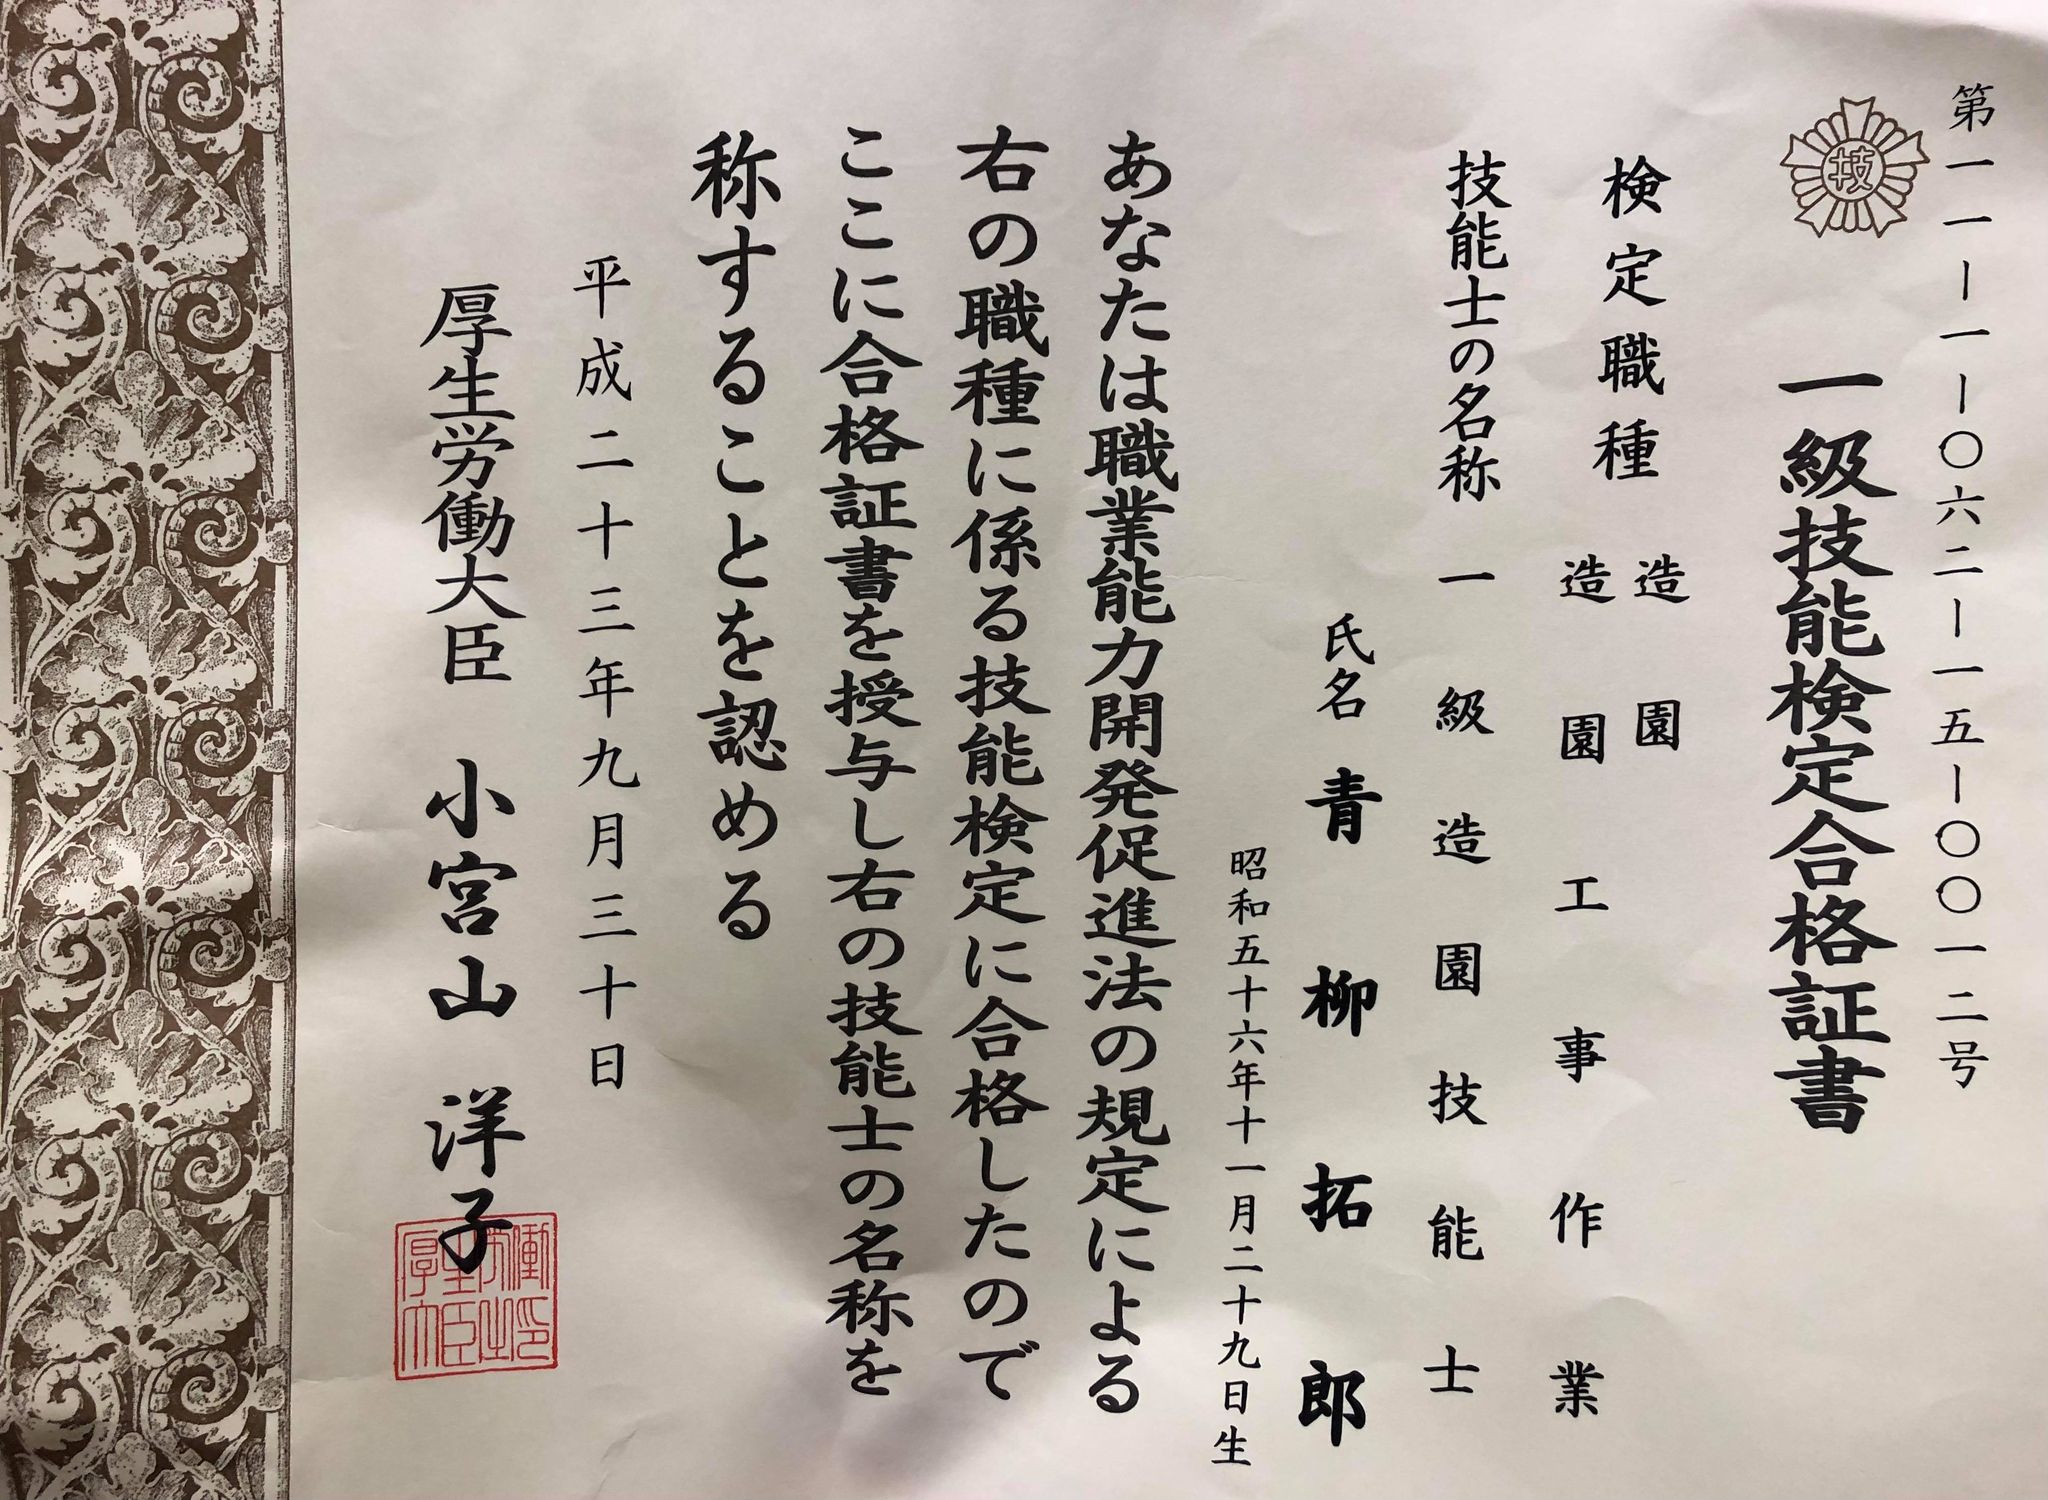 第一一一一一〇六二一一五一〇〇一二号
技
一級技能検定合格証書
検定職種
造園
造園工事作業
技能士の名称 一級造園技能士
氏名 青柳拓郎
昭和五十六年十一月二十九日生
あなたは職業能力開発促進法の規定による
右の職種に係る技能検定に合格したので
ここに合格証書を授与し右の技能士の名称を
称することを認める
平成二十三年九月三十日
厚生労働大臣 小宮山洋子
厚生労働大臣之印